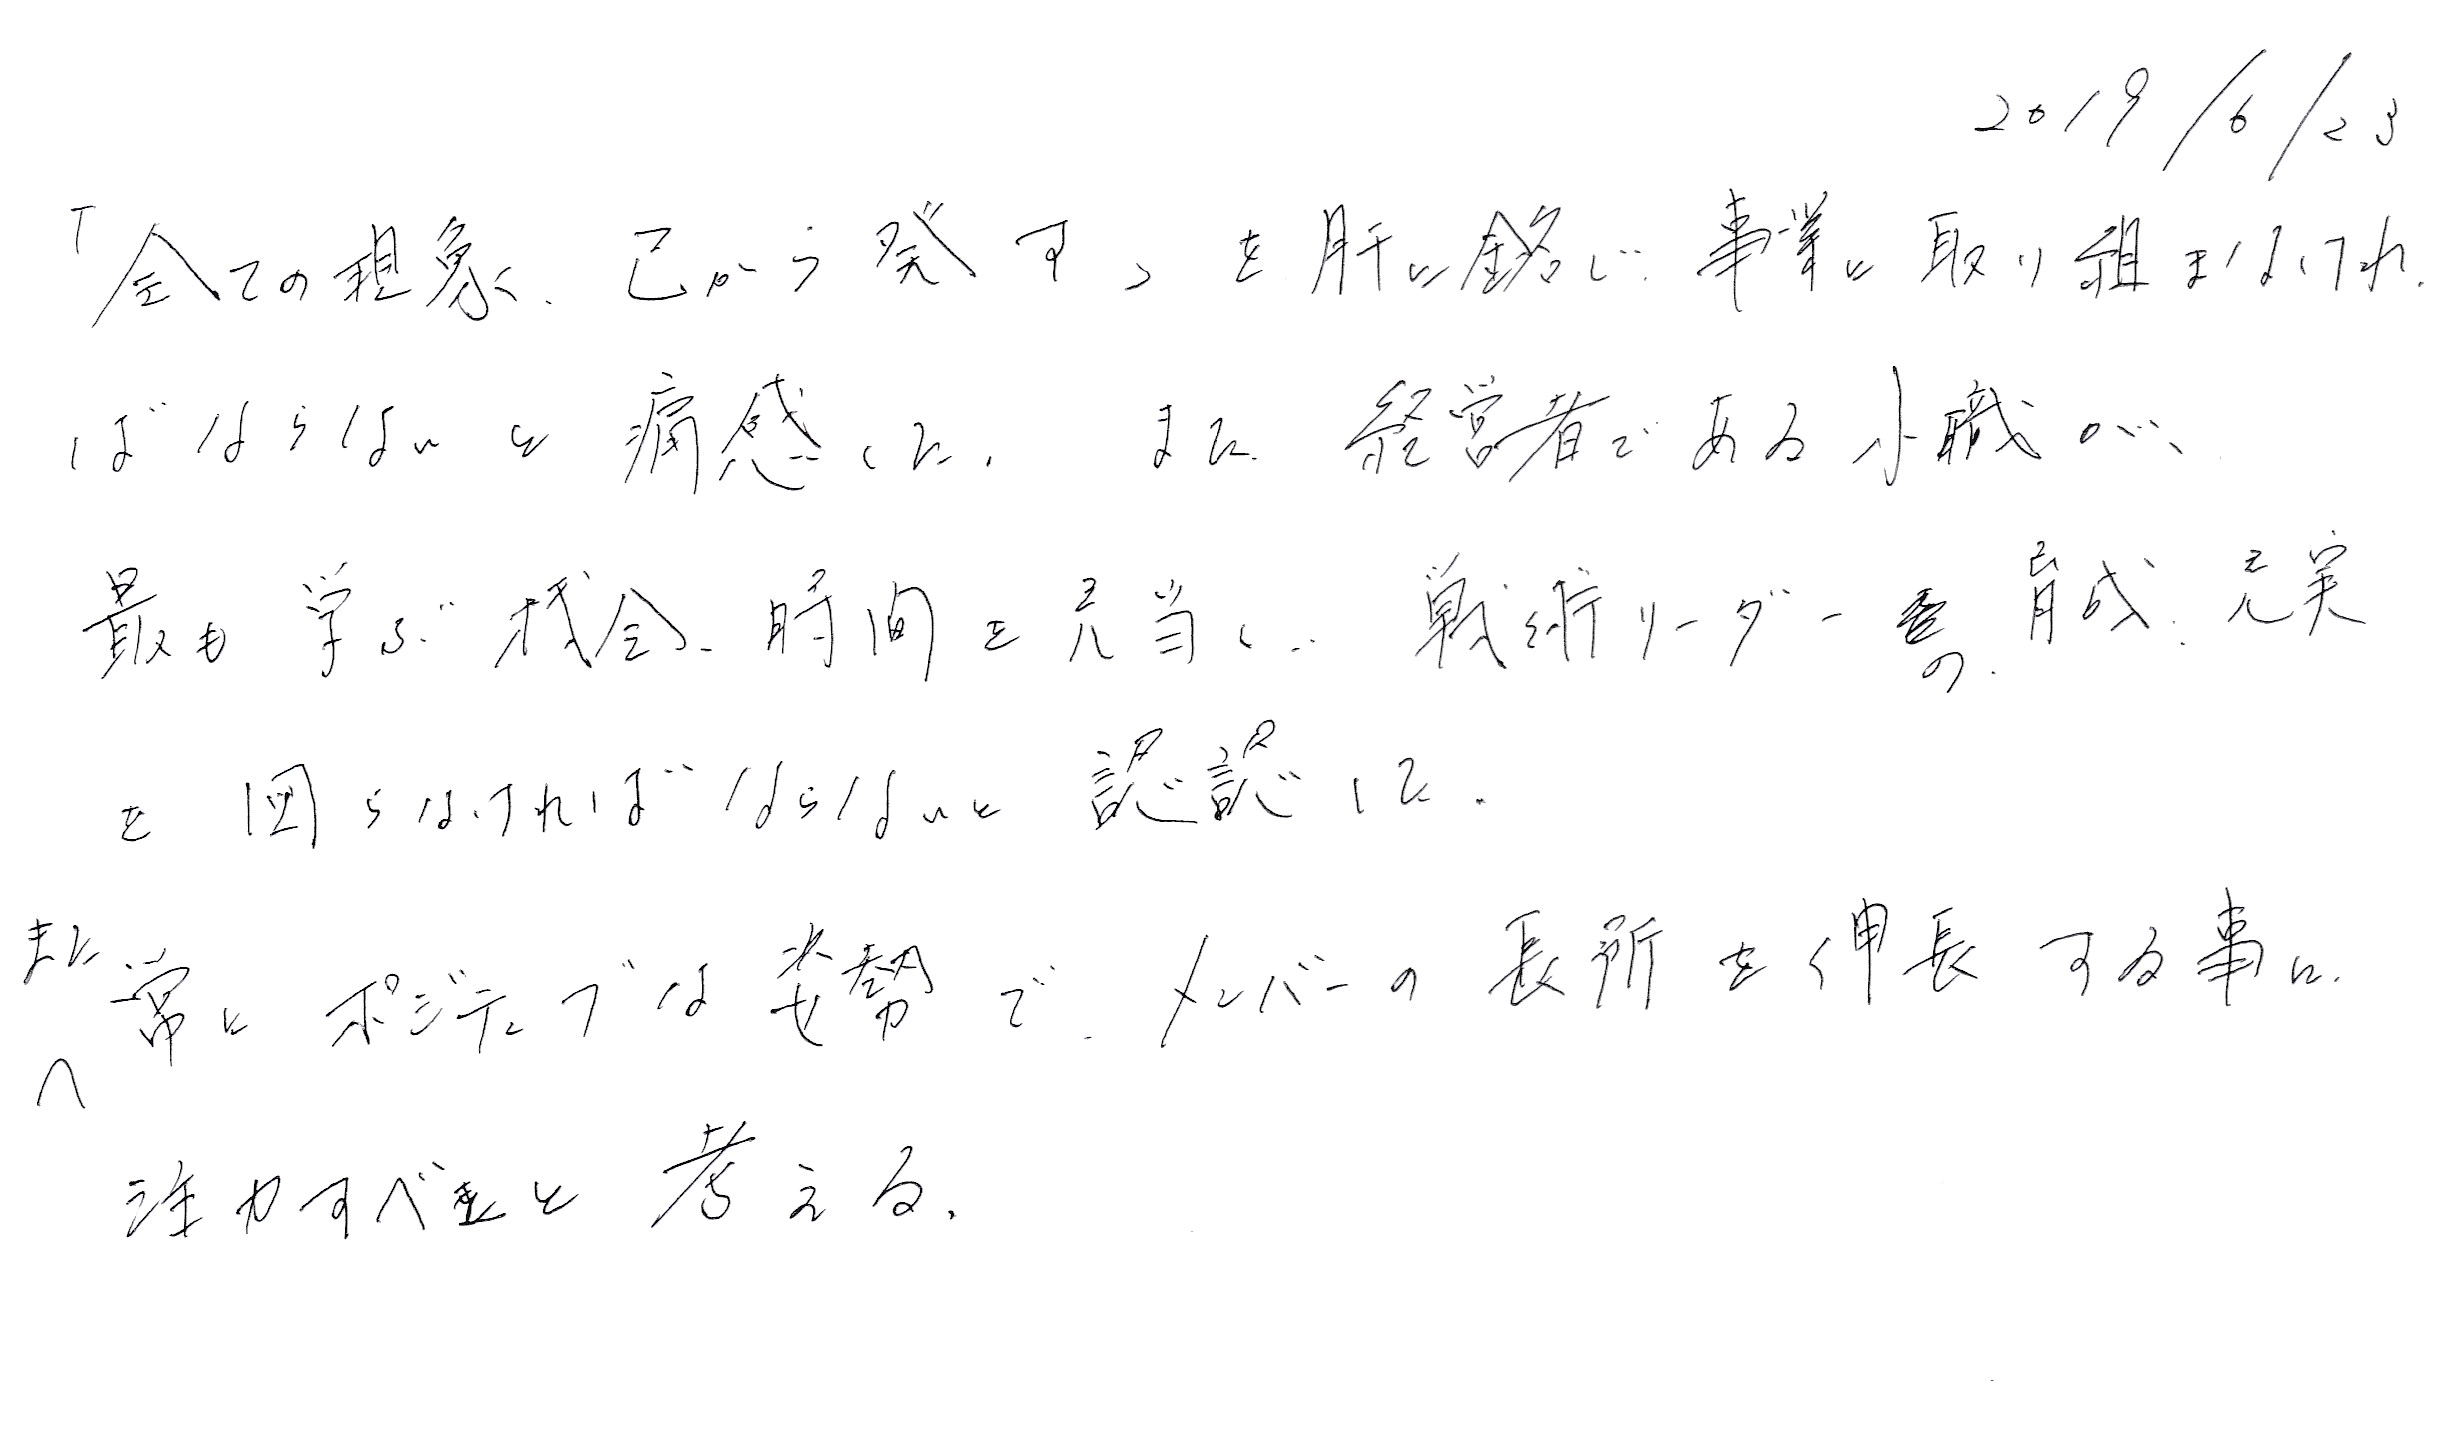 2019/6/23
「全ての現象、己から発す」を肝に銘じ、事業に取り組まなけれ
ばならないと痛感した。また、経営者である小職が、
最も学ぶ機会、時間を充当し、戦術リーダーの育成、充実
を図らなければならないと認認した。
また常にポジティブな姿勢で、メンバーの長所を伸長する事に
注力すべきと考える。